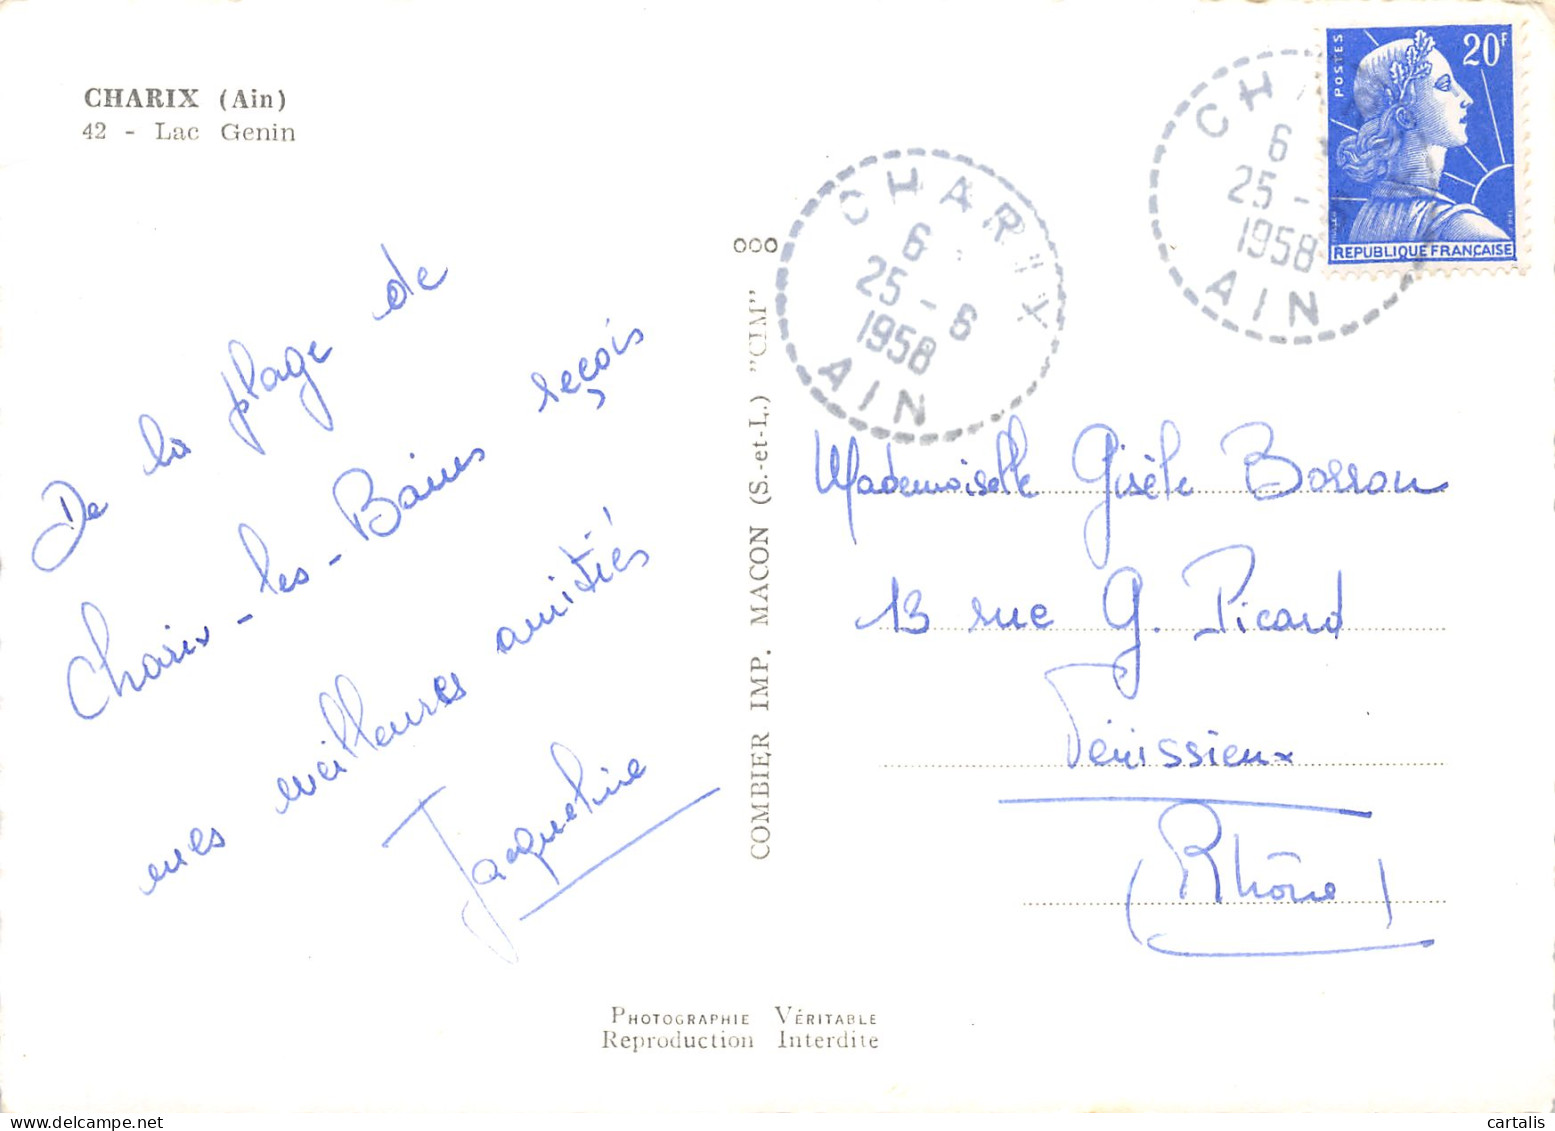 CHARIX (Ain)
42 - Lac Genin
De la plage de
Charix-les-Bains reçois
mes meilleures amitiés
Jacqueline
COMBIER IMP. MACON (S.-et-L.) "CIM"
ooo
CHARIX
6
25-6
1958
AIN
CHA
6
25-
1958
AIN
POSTES
20F
REPUBLIQUE FRANÇAISE
Mademoiselle Gisèle Bosson
13 rue G. Picard
Vénissieux
(Rhône)
PHOTOGRAPHIE VÉRITABLE
Reproduction Interdite
cartalis